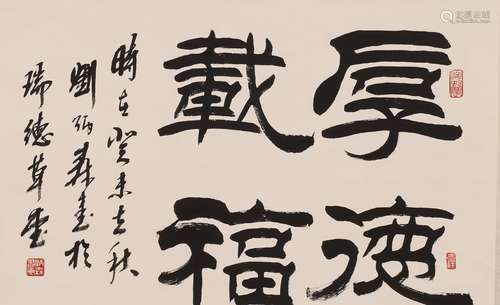 厚德
載福
時在癸未立秋
劉炳森書於
瑞德草堂